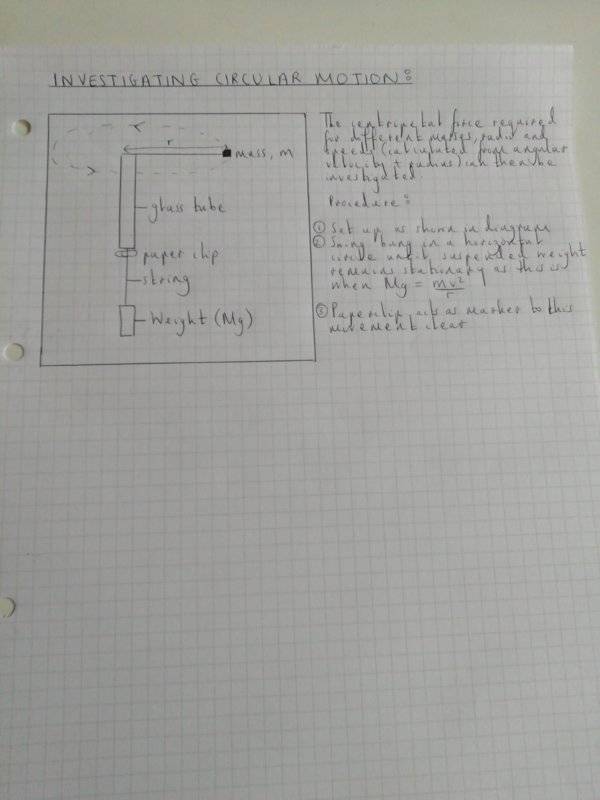 INVESTIGATING CIRCULAR MOTION:
r
mass, m
glass tube
paper clip
string
Weight (Mg)
The centripetal force required
for different masses, radii and
speeds (calculated from angular
velocity + radius) can then be
investigated.
Procedure:
① Set up as shown in diagram
② Swing bung in a horizontal
circle until suspended weight
remains stationary as this is
when Mg = mv²/r
③ Paperclip acts as marker to this
movement clear